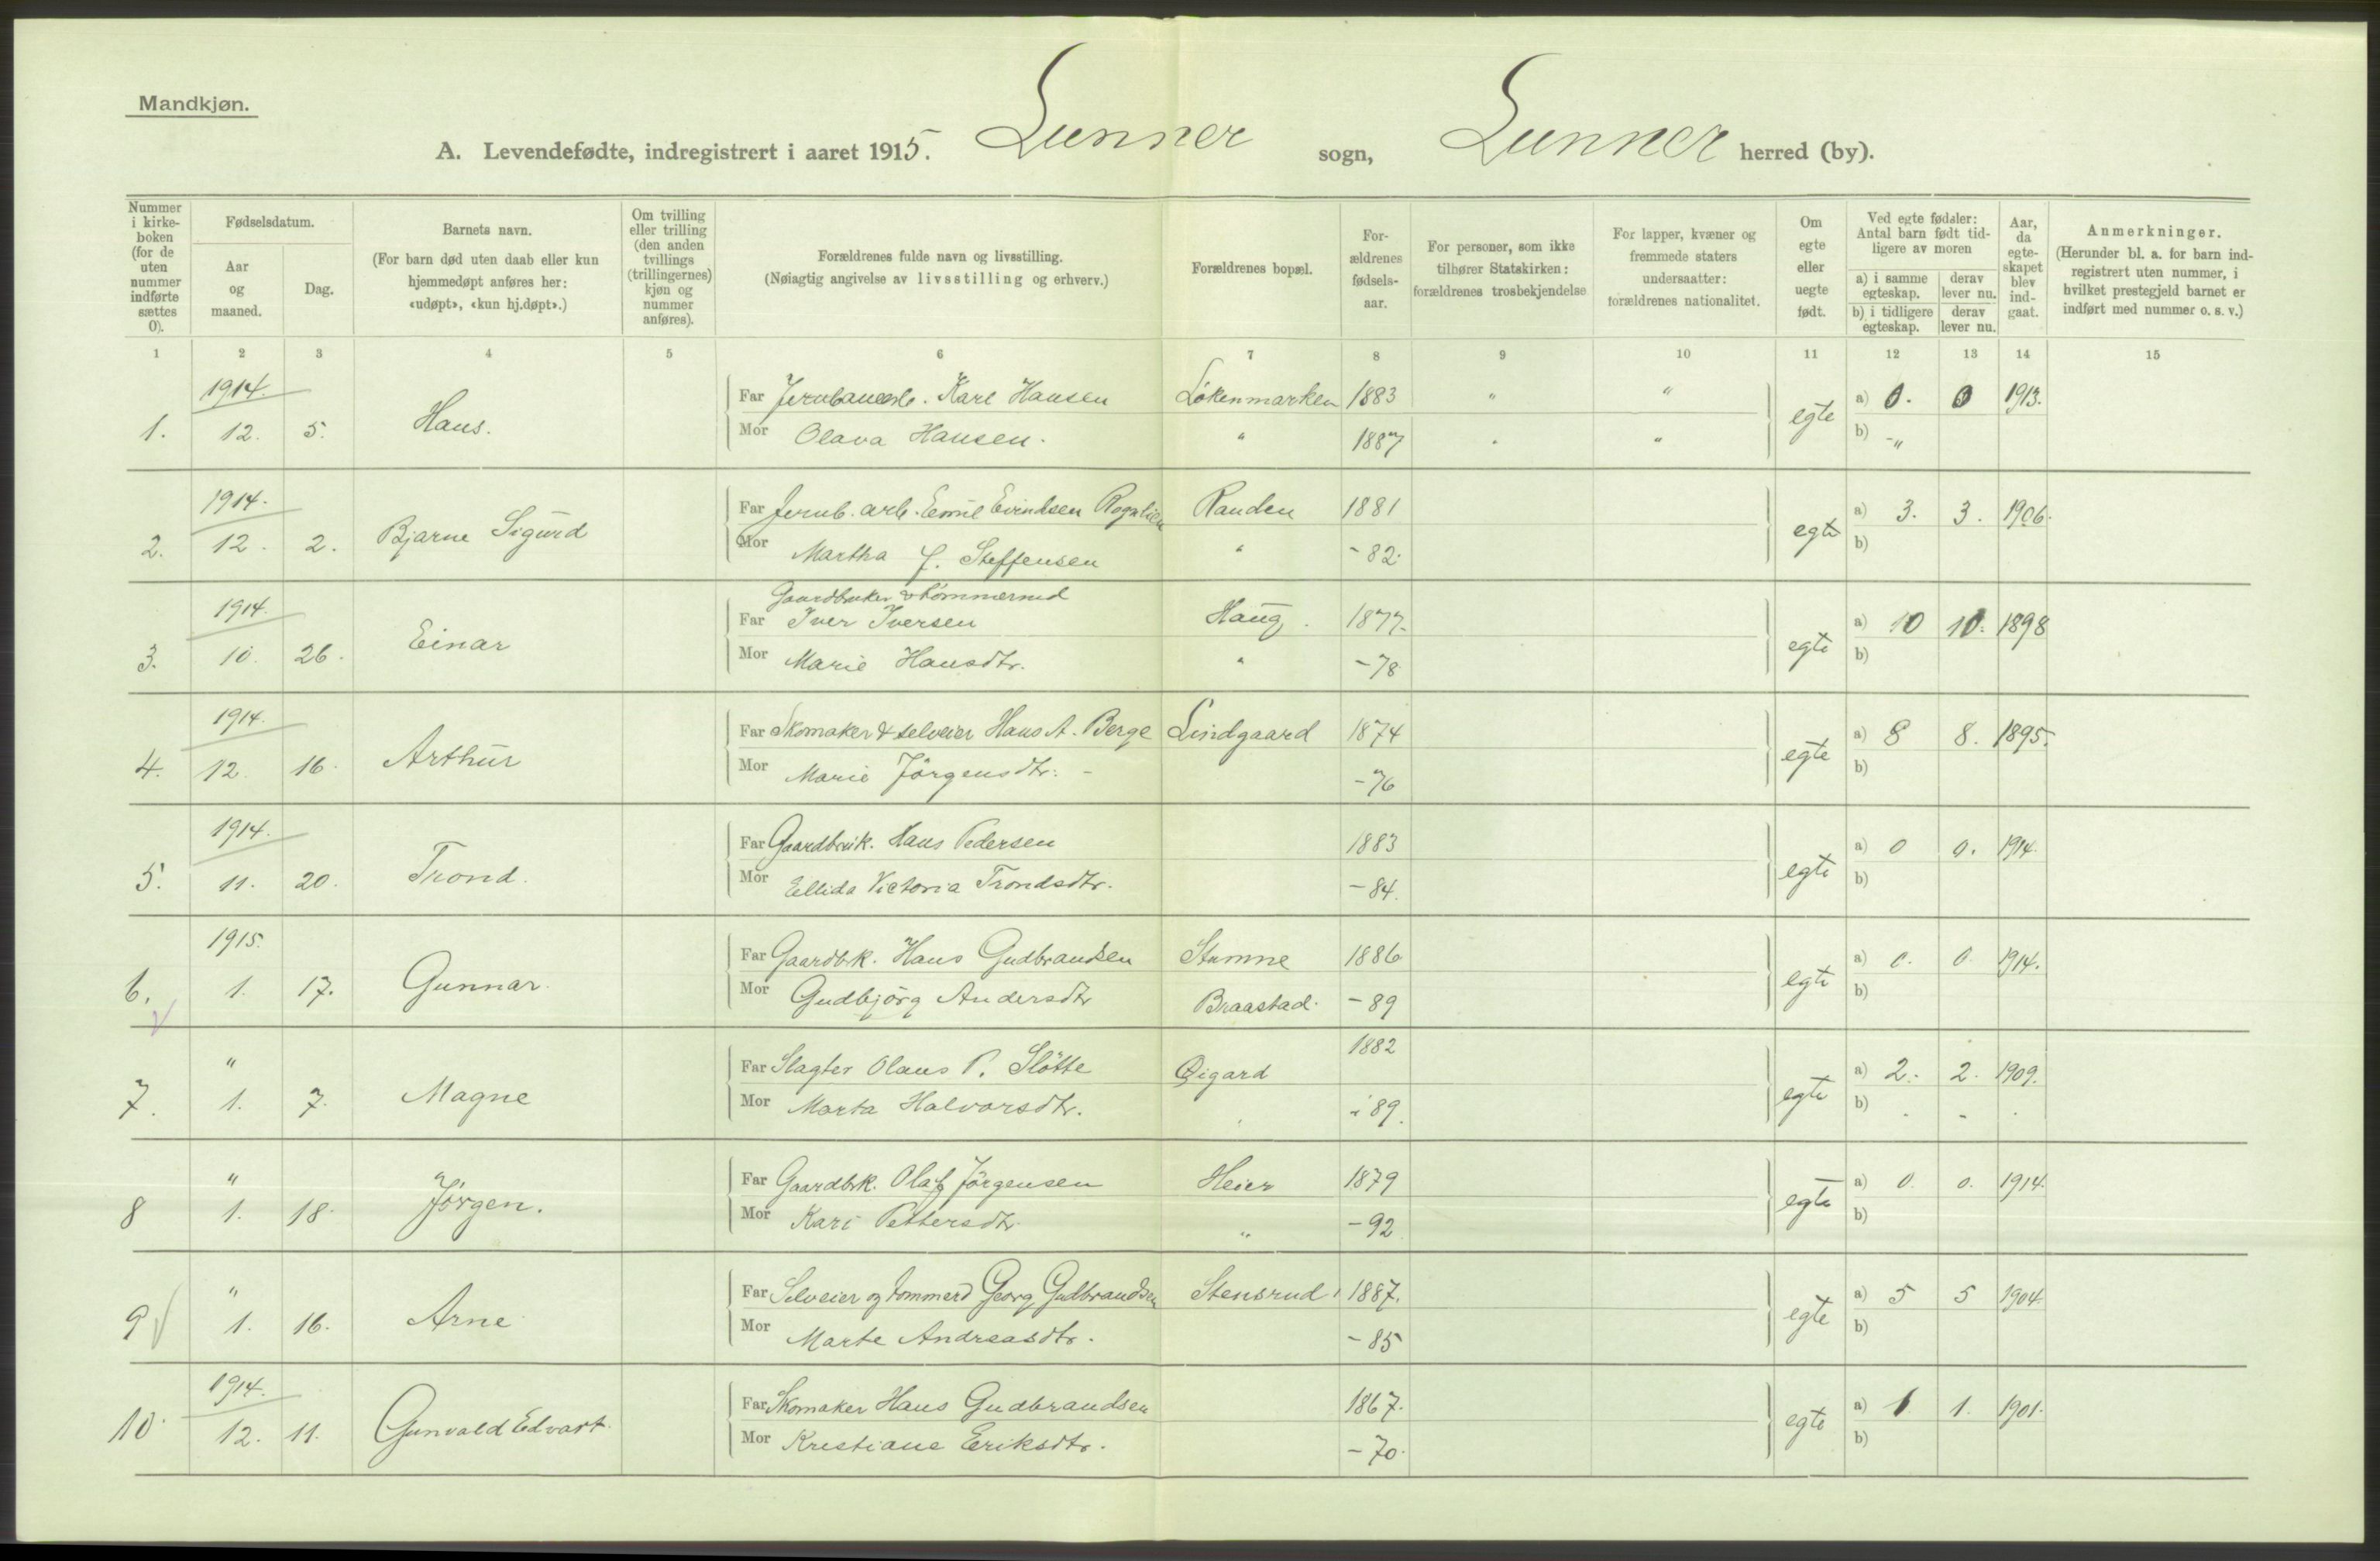 Mandkjøn.
A. Levendefødte, indregistrert i aaret 1915. Lunner sogn, Lunner herred (by).
Nummer i kirke-boken (for de uten nummer indførte sættes 0).
Fødselsdatum.
Aar og maaned.
Dag.
Barnets navn.
(For barn død uten daab eller kun hjemmedøpt anføres her: «udøpt», «kun hj.døpt».)
Om tvilling eller trilling (den anden tvillings (trillingernes) kjøn og nummer anføres).
Forældrenes fulde navn og livsstilling.
(Nøiagtig angivelse av livsstilling og erhverv.)
Forældrenes bopæl.
For-ældrenes fødsels-aar.
For personer, som ikke tilhører Statskirken: forældrenes trosbekjendelse.
For lapper, kvæner og fremmede staters undersaatter: forældrenes nationalitet.
Om egte eller uegte født.
Ved egte fødsler: Antal barn født tid-ligere av moren
a) i samme egteskap.
derav lever nu.
b) i tidligere egteskap.
derav lever nu.
Aar, da egte-skapet blev ind-gaat.
Anmerkninger.
(Herunder bl. a. for barn ind-registrert uten nummer, i hvilket prestegjeld barnet er indført med nummer o. s. v.)
1 2 3 4 5 6 7 8 9 10 11 12 13 14 15
1914.
Far Jernbanearb. Karl Hansen Lökenmarken 1883 " " a) 0. 0 1913.
1. 12. 5. Hans. egte
Mor Olava Hansen. " 1887 " " b) -"
1914.
Far Jernb. arb. Emil Evindsen Rognlien Randen 1881 a) 3. 3. 1906.
2. 12. 2. Bjarne Sigurd egte
Mor Martha J. Steffensen " -82. b)
1914. Gaardbruker &
Far Iver Iversen Haug. 1877. a) 10 10. 1898
3. 10. 26. Einar egte
Mor Marie Hansdtr. " -78 b)
1914.
Far Skomaker & selveier Hans A. Berge Lindgaard 1874 a) 8 8. 1895.
4. 12. 16. Arthur egte
Mor Marie Jörgensdtr. - -76 b)
1914.
Far Gaardbruk. Hans Pedersen 1883 a) 0 0. 1914.
5. 11. 20. Trond. egte
Mor Ellida Victoria Trondsdtr. -84. b)
1915.
Far Gaardbk. Hans Gudbrandsen Stumne 1886 a) 0. 0 1914.
6. 1. 17. Gunnar. egte
Mor Gudbjörg Andersdtr Braastad. -89 b)
"
1882
Far Slagter Olaus P. Slötte Øigard a) 2. 2. 1909.
7. 1. 7. Magne egte
Mor Marta Halvorsdtr. -89. b) - -
"
Far Gaardbrk. Olaf Jörgensen Heier 1879 a) 0. 0. 1914.
8 1. 18. Jörgen. egte
Mor Kari Pettersdtr. " -92 b)
"
Far Selveier og tømmerd Georg Gudbrandsen Stensrud 1887. a) 5 5 1904.
9 1. 16. Arne egte
Mor Marte Andreasdtr. -85 b)
1914.
Far Skomaker Hans Gudbrandsen 1867. a) 1 1. 1901.
10 12. 11. Gunvald Edvart. egte
Mor Kristiane Eriksdtr. -70. b)